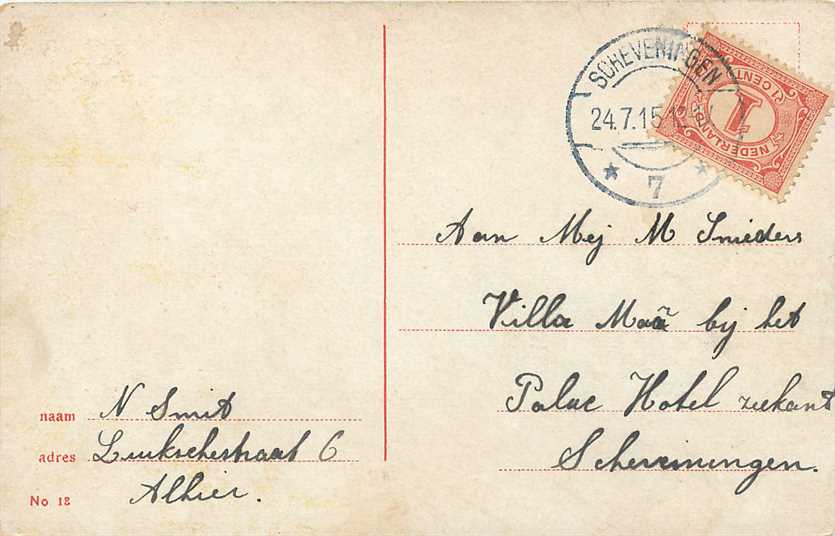 SCHEVENINGEN
24.7.15.12
7
NEDERLAND
1
1 CENT
Aan Mej M Smeders
Villa Maã bij het
Palac Hotel zeekant
Scheveningen.
naam N Smit
adres Luikschestraat 6
Alhier.
No 18